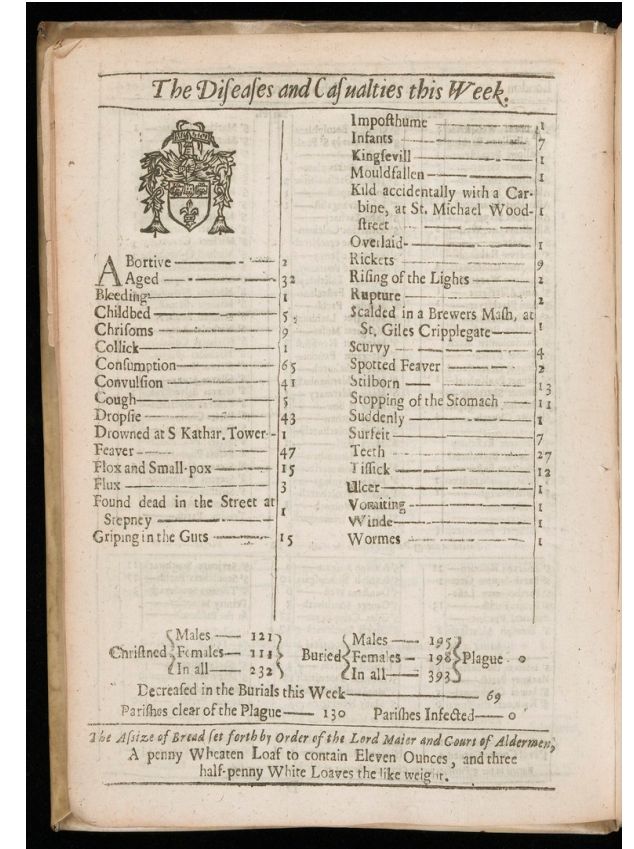 The Diſeaſes and Caſualties this Week.
ABortive 2
Aged 32
Bleeding 1
Childbed 5
Chriſoms 9
Collick 1
Conſumption 65
Convulſion 41
Cough 5
Dropſie 43
Drowned at S Kathar. Tower 1
Feaver 47
Flox and Small-pox 15
Flux 3
Found dead in the Street at
Stepney 1
Griping in the Guts 15
Impoſthume 1
Infants 7
Kingſevill 1
Mouldfallen 1
Kild accidentally with a Car-
bine, at St. Michael Wood- 1
ſtreet
Overlaid 1
Rickets 9
Riſing of the Lights 2
Rupture 2
Scalded in a Brewers Maſh, at
St. Giles Cripplegate 1
Scurvy 4
Spotted Feaver 2
Stilborn 13
Stopping of the Stomach 11
Suddenly 1
Surfeit 7
Teeth 27
Tiſſick 12
Ulcer 1
Vomiting 1
Winde 1
Wormes 1
Chriſtned Males 121 Females 111 In all 232 Buried Males 195 Females 198 In all 393 Plague 0
Decreaſed in the Burials this Week 69
Pariſhes clear of the Plague 130 Pariſhes Infected 0
The Aſsize of Bread ſet forth by Order of the Lord Maior and Court of Aldermen,
A penny Wheaten Loaf to contain Eleven Ounces, and three
half-penny White Loaves the like weight.